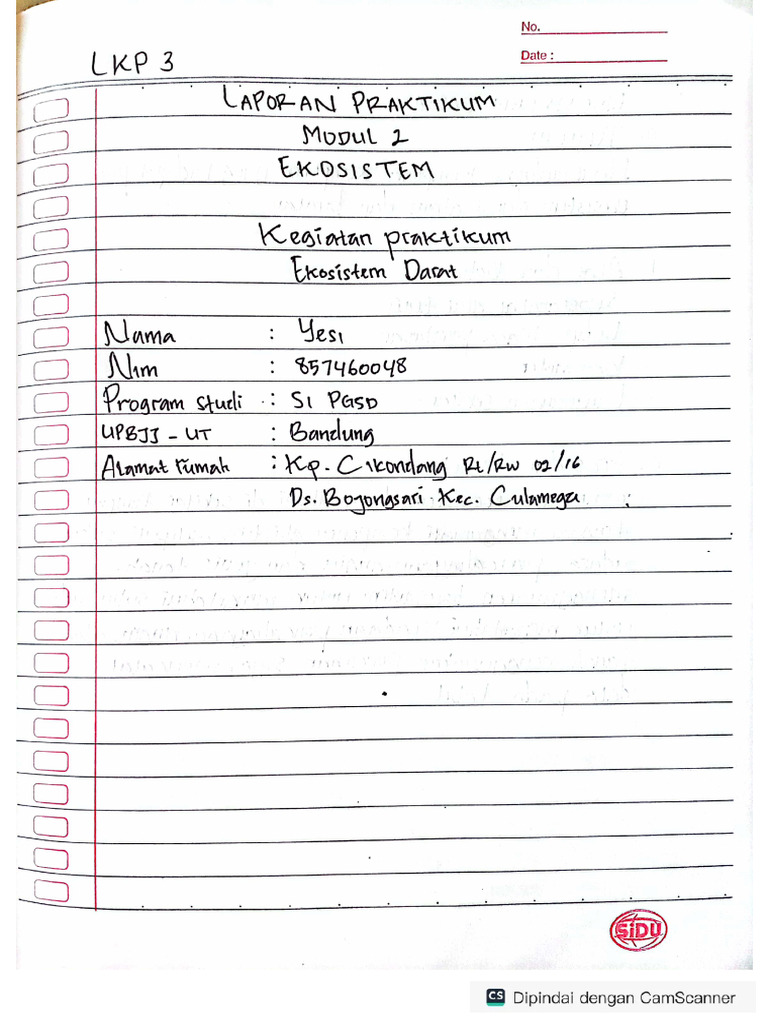 No.
Date :
LKP 3
LAPORAN PRAKTIKUM
MODUL 2
EKOSISTEM
Kegiatan praktikum
Ekosistem Darat
Nama : Yesi
Nim : 857460048
Program studi : S1 PGSD
UPBJJ - UT : Bandung
Alamat rumah : Kp. Cikondang Rt/Rw 02/16
Ds. Bojongsari Kec. Culamega
SiDU
CS Dipindai dengan CamScanner